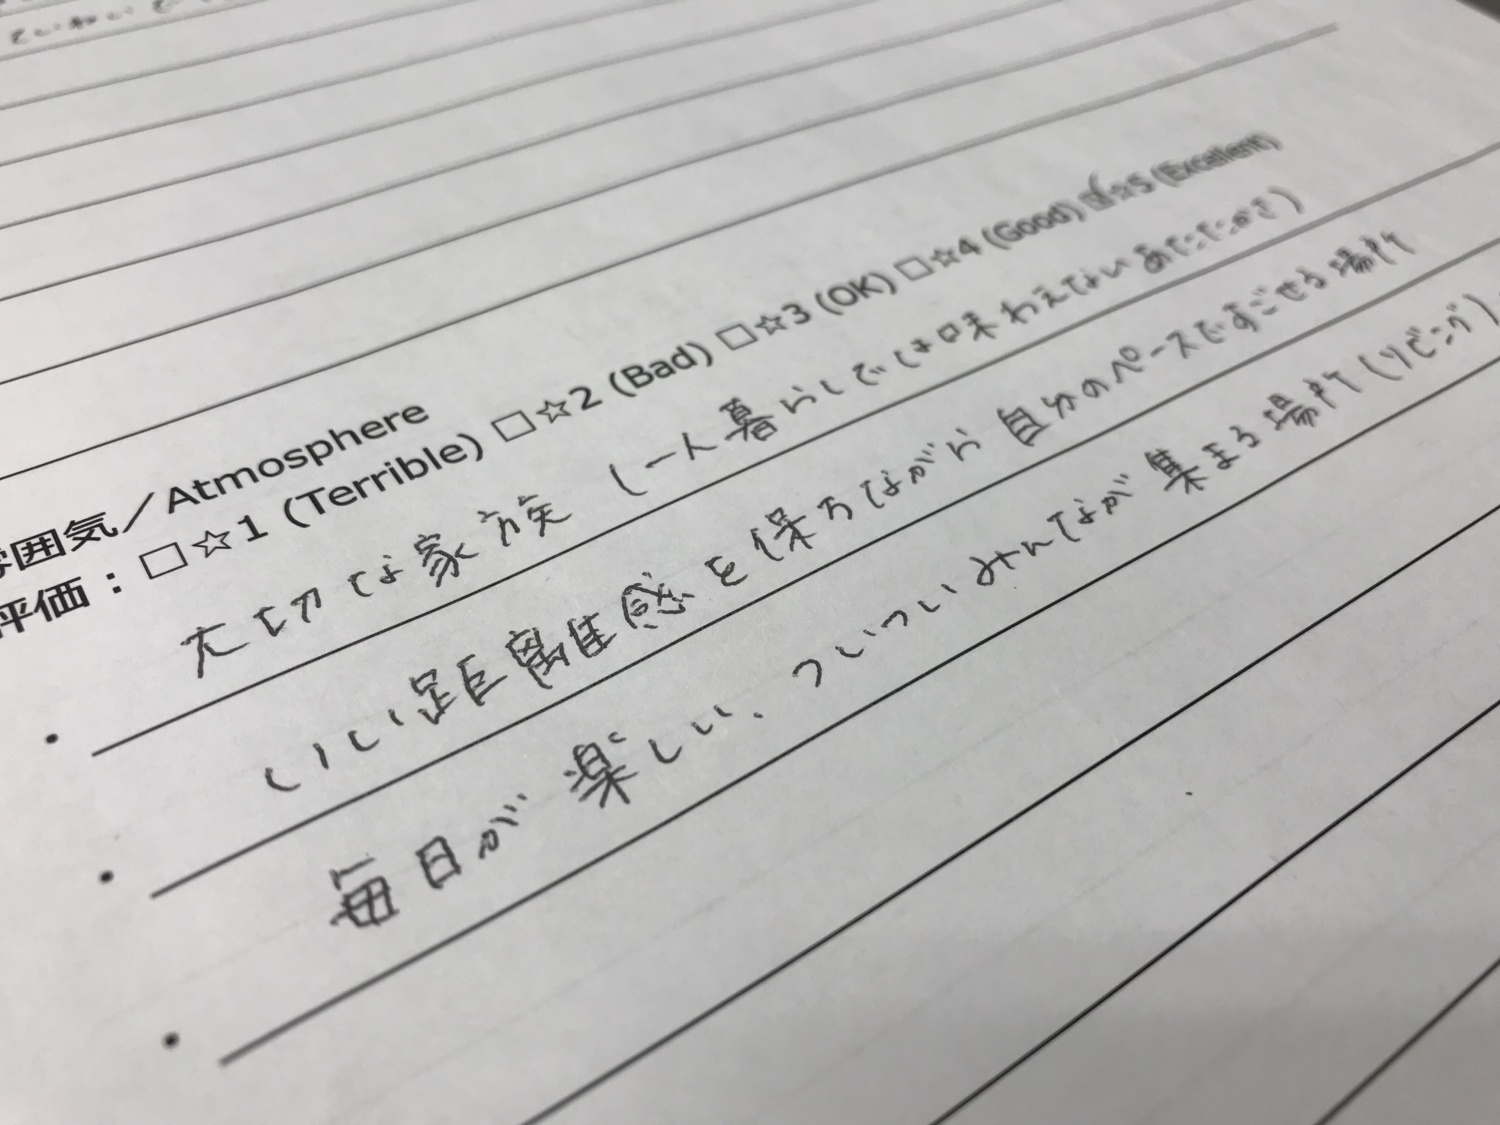 ていねいで
雰囲気／Atmosphere
評価：□☆1 (Terrible) □☆2 (Bad) □☆3 (OK) □☆4 (Good) ☑☆5 (Excellent)
・大切な家族（一人暮らしでは味わえないあたたかさ）
・いい距離感を保ちながら自分のペースですごせる場所
・毎日が楽しい、ついついみんなが集まる場所（リビング）